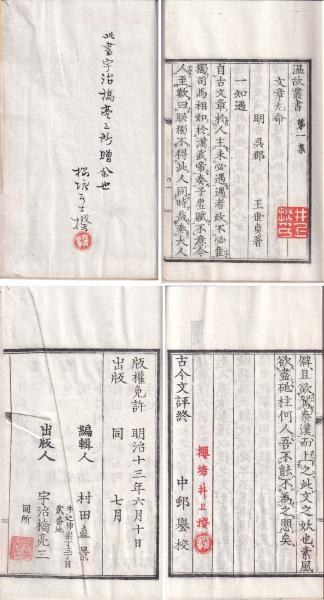 此書宇治橋亮三所贈余也
温故叢書 第一集
文章九命
明 呉郡 王世貞著
一知遇
自古文章於人主未必遇遇者政不必佳
獨司馬相如於漢武帝奏子虚賦不意令
人主歎曰朕獨不得此人同時哉奏大人
僻且欲駕秦漢而上之此文之妖也素風
欲盡砥柱何人吾不能不為之悲矣
古今文評終
中郵譽校
版權免許 明治十三年六月十日
出版 同 七月
編輯人 村田直景
出版人 宇治橋亮三
同所